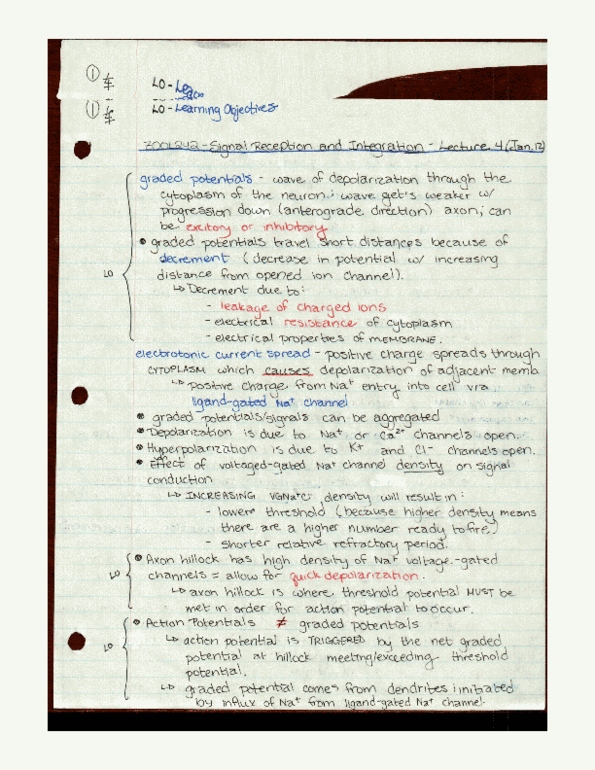 ① LO - Lea
① LO - Learning Objectives
ZOOL242 - Signal Reception and Integration - Lecture 4 (Jan. 12)
graded potentials - wave of depolarization through the
cytoplasm of the neuron; wave get's weaker w/
progression down (anterograde direction) axon; can
be excitory or inhibitory
• graded potentials travel short distances because of
decrement (decrease in potential w/ increasing
LO distance from opened ion channel).
↳ Decrement due to:
- leakage of charged ions
- electrical resistance of cytoplasm
- electrical properties of MEMBRANE.
electrotonic current spread - positive charge spreads through
CYTOPLASM which causes depolarization of adjacent memb
↳ positive charge from Na⁺ entry into cell via
ligand-gated Na⁺ channel
• graded potentials/signals can be aggregated
• Depolarization is due to Na⁺ or Ca²⁺ channels open.
• Hyperpolarization is due to K⁺ and Cl⁻ channels open.
• Effect of voltaged-gated Na⁺ channel density on signal
conduction
↳ INCREASING VGNa⁺C density will result in:
- lower threshold (because higher density means
there are a higher number ready to fire)
- shorter relative refractory period.
• Axon hillock has high density of Na⁺ voltage-gated
LO channels = allow for quick depolarization.
↳ axon hillock is where threshold potential MUST be
met in order for action potential to occur.
• Action Potentials ≠ graded potentials
LO ↳ action potential is TRIGGERED by the net graded
potential at hillock meeting/exceeding threshold
potential.
↳ graded potential comes from dendrites; initiated
by influx of Na⁺ from ligand-gated Na⁺ channel.